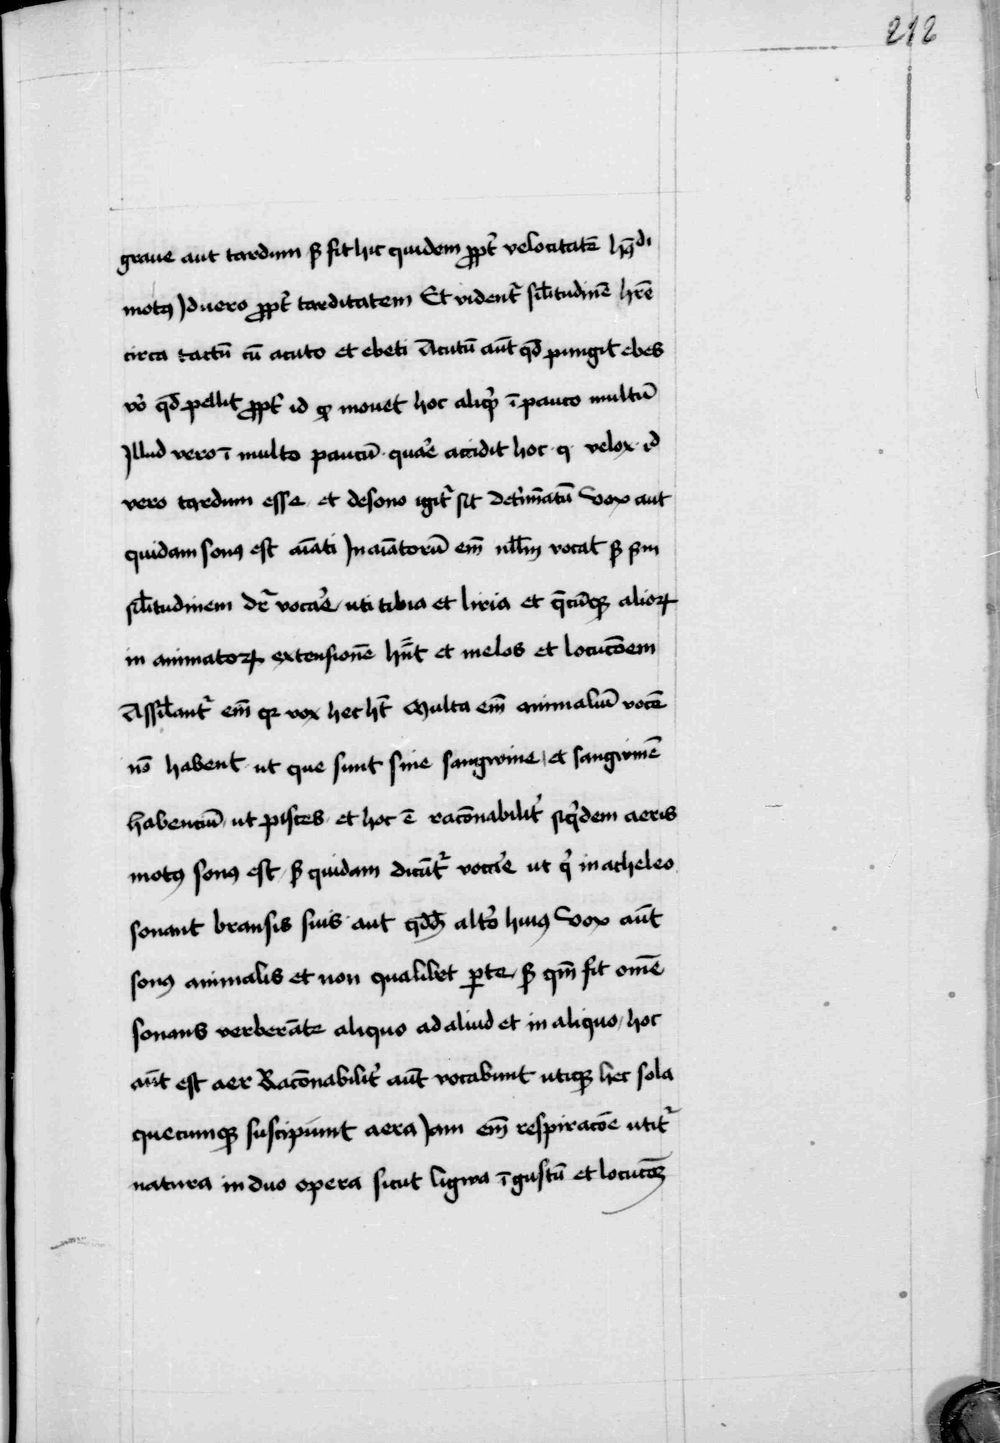 212
graue aut tardum ꝫ fit hic quidem ꝓpt̓ velocitatē hꝰdi
motꝰ Id uero ꝓpt̓ tarditatem Et vident᷑ sil̄itudinē hr̄e
circa tactū cū acuto et ebeti Acutū aūt qd̄ pungit ebes
vō qd̄ pellit ꝓpt̓ id ꝙ mouet hoc aliqͥd ī pauco multū
Illud vero ī multo paucū quar̓e accidit hoc q velox id
vero tardum esse et de sono igit᷑ sit det̓minatū Vox aut
quidam sonꝰ est aīati Inaīatorū em̄ nll̄m vocat ꝫ ẜm
sil̄itudinem dr̄ vocar̓e uti tibia et liria et q̄cūqꝫ alioꝝ
in animatoꝝ extensionē hn̄t et melos et locucōem
Assil̄ant᷑ em̄ qꝛ vox hec hꝫ Multa em̄ animaliū vocē
nō habent ut que sunt sine sangwine et sangwinē
habenciū ut pisces et hoc ē racōnabilit̓ siqͥdem aeris
motꝰ sonꝰ est ꝫ quidam dicūt᷑ vocar̓e ut qͥ in acheleo
sonant bransis suis aut qͥddā alt̓o huiꝰ Vox aūt
sonꝰ animalis et non qualibet ꝑte ꝫ qm̄ fit omē
sonans verberāte aliquo ad aliud et in aliquo hoc
aūt est aer Racōnabilit̓ aūt vocabunt utiqꝫ hec sola
quecumqꝫ suscipiunt aera Iam em̄ respiracōe utit᷑
natura in duo opera sicut ligwa ī gustū et locucōꝫ